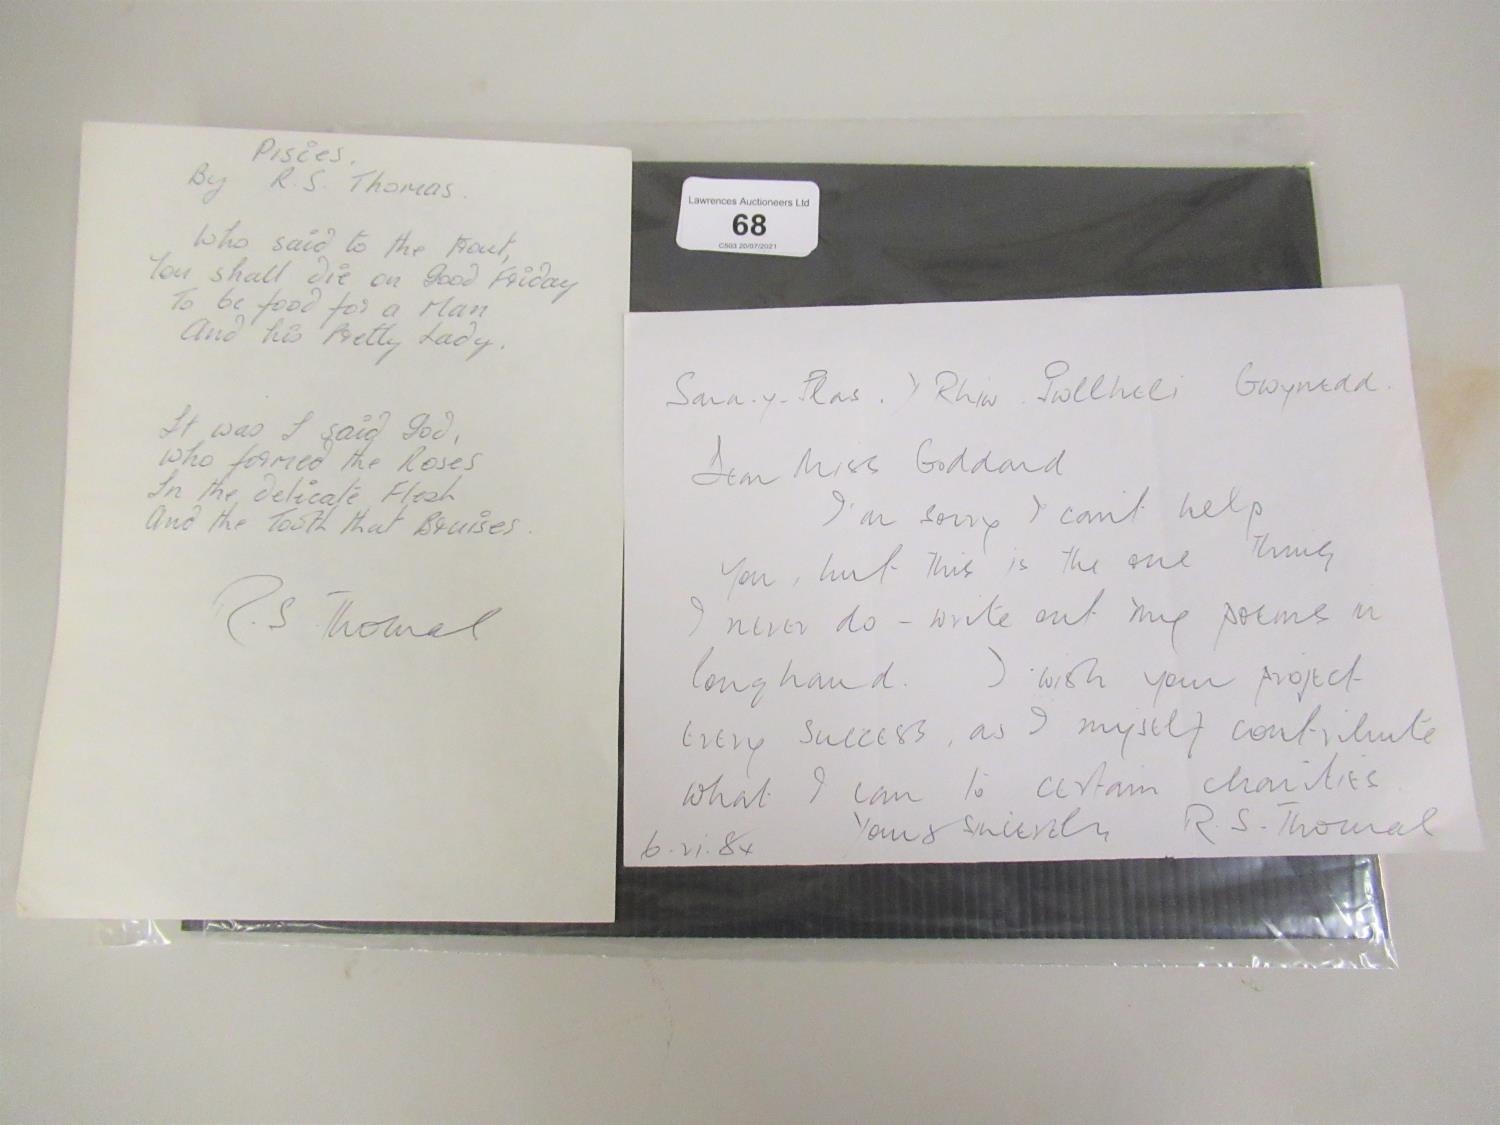 Pisces.
By R.S. Thomas.
Who said to the trout,
You shall die on Good Friday
To be food for a Man
And his Pretty Lady.
It was I said God,
Who formed the Roses
In the delicate Flesh
And the Tooth that Bruises.
R.S. Thomas
Lawrences Auctioneers Ltd
68
C503 20/07/2021
Sarn-y-Plas. Y Rhiw. Pwllheli Gwynedd.
Dear Miss Goddard
I'm sorry I can't help
you, but this is the one thing
I never do - write out my poems in
longhand. I wish your project
every success, as I myself contribute
what I can to certain charities.
Yours sincerely R.S. Thomas
6.vi.84